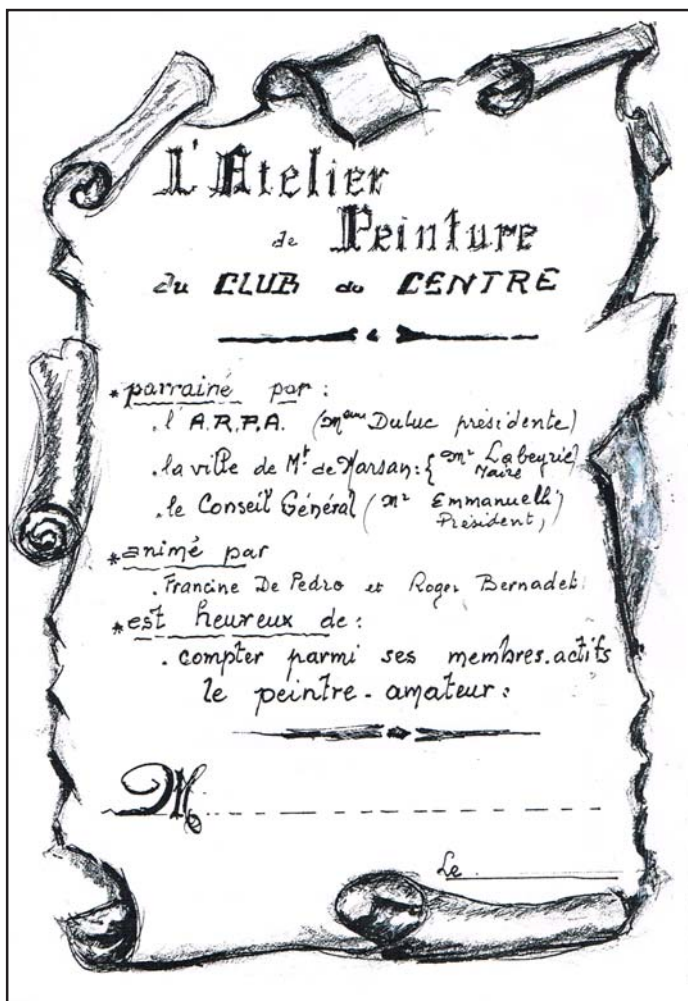 L'Atelier
de Peinture
du CLUB du CENTRE
* parrainé par :
. l'A.R.P.A. (Mme Duluc présidente)
. la ville de Mt de Marsan : { Mr Labeyrie
Maire
. le Conseil Général (Mr Emmanuelli
Président)
* animé par
. Francine De Pedro et Roger Bernadet.
* est heureux de :
. compter parmi ses membres.actifs
le peintre-amateur :
M.
Le